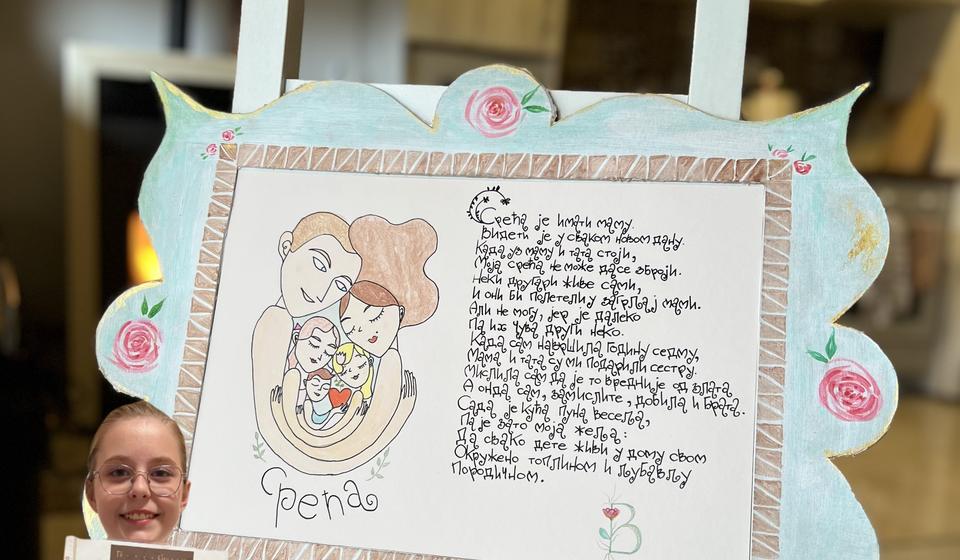 Срећа је имати маму.
Видети је у сваком новом дану.
Када уз маму и тата стоји,
Моја срећа не може да се зброји.
Неки другари живе сами,
И они би полетели у загрљај мами.
Али не могу, јер је далеко
Па их чува други неко.
Када сам навршила годину седму,
Мама и тата су ми подарили сестру.
Мислила сам да је то вредније од злата,
А онда сам, замислите, добила и брата.
Сада је кућа пуна весеља,
Па је зато моја жеља:
Да свако дете живи у дому свом
Окружено топлином и љубављу
Породичном.
Срећа
В